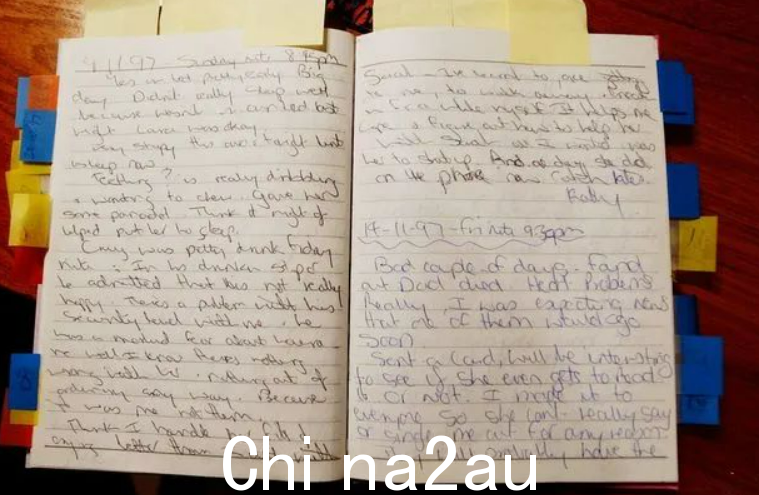 9-11-97 - Sunday nite 8.45pm
Yes in bed pretty early. Big
day. Didn't really sleep well
because wasn't in our bed last
night. Laura was okay.
very sleepy this over tonight
asleep now
Teething? is really dribbling
& wanting to chew. Gave her
some panadol. Think it might of
helped put her to sleep.
Craig was pretty drunk Friday
nite. In his drunken stupor
he admitted that he's not really
happy. There's a problem with his
security level with me. he
has a morbid fear about Laura
me well I know there's nothing
wrong with her. nothing out of
ordinary any way. Because
it was me not them
Think I handle her fits of
crying better than I did with
Sarah - I've learnt to
me, to walk away &
for a while myself It helps me
cope & figure out how to help her
With Sarah all I wanted was
her to shut up. And one day she did
on the phone now. Catch later.
Kathy
14-11-97 - Fri nite 930pm
Bad couple of days. Found
out Dad died. Heart Problems
Really, I was expecting news
that one of them would go
soon
Sent a Card, will be interesting
to see if she even gets to read
it or not. I made it to
everyone so she can't really say
or single me out for any reason
probably have the
China2au